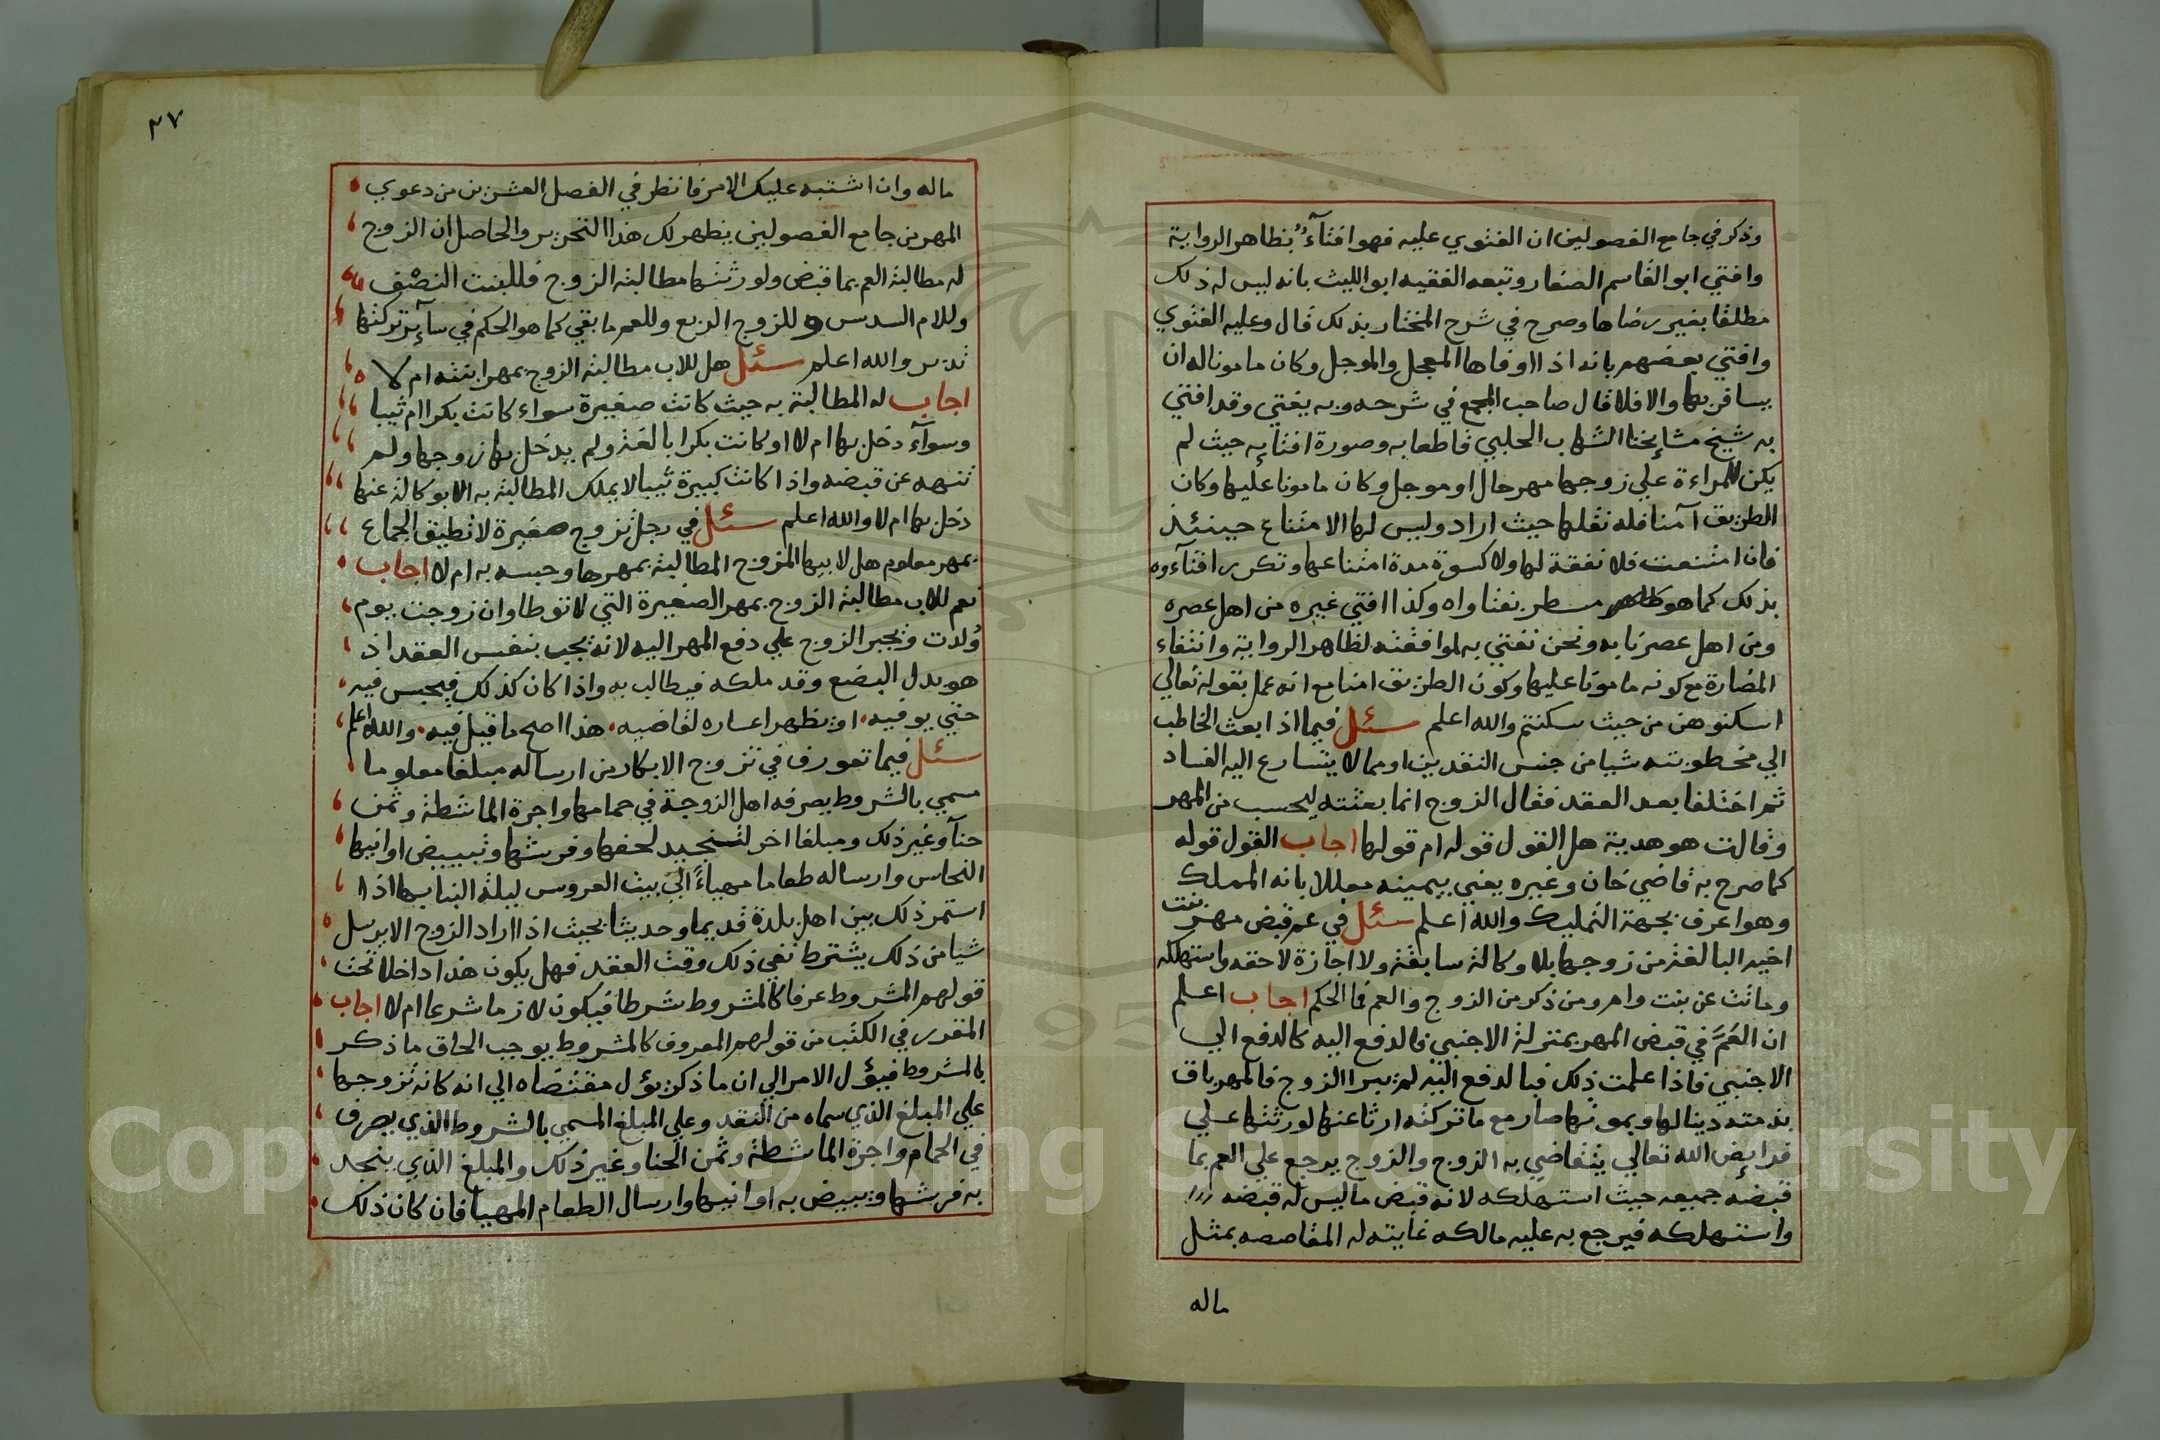 وذكر في جامع الفصولين ان الفتوي عليه فهو افتآء بظاهر الرواية
وافتي ابو القاسم الصفار وتبعه الفقيه ابو الليث بانه ليس له ذلك
مطلقا بغير رضاها وصرح في شرح المختار بذلك قال وعليه الفتوي
وافتي بعضهم بانه اذا اوفاها المعجل والموجل وكان مامونا له ان
يسافر بها والا فلا قال صاحب المجمع في شرحه وبه يفتي وقد افتي
به شيخ مشايخنا الشهاب الحلبي قاطعا به وصورة افتايه حيث لم
يكن للمراءة علي زوجها مهر حال او موجل وكان مامونا عليها وكان
الطريق آمنا فله نقلها حيث اراد وليس لها الامتناع حينئذ
فان امتنعت فلا نفقة لها ولا كسوة مدة امتناعها وتكرر افتآءوه
بذلك كما هو مسطر بفتاواه وكذا افتي غيره من اهل عصره
ومن اهل عصرنا به ونحن نفتي به لموافقته لظاهر الرواية وانتفاء
المضارة مع كونه مامونا عليها وكون الطريق امنا مع انه عمل بقوله تعالي
اسكنوهن من حيث سكنتم والله اعلم سئل فيما اذا بعث الخاطب
الي مخطوبته شيا من جنس النقدين او مما لا يتسارع اليه الفساد
ثم اختلفا بعد العقد فقال الزوج انما بعثته ليحسب من المهر
وقالت هو هدية هل القول قوله ام قولها اجاب القول قوله
كما صرح به قاضي خان وغيره يعني بيمينه معللا بانه المملك
وهو اعرف بجهة التمليك والله اعلم سئل في عم قبض مهر بنت
اخيه البالغة من زوجها بلا وكالة سابقة ولا اجازة لاحقه واستهلكه
وماتت عن بنت وام ومن ذكر من الزوج والعم فما الحكم اجاب اعلم
ان العم في قبض المهر بمنزلة الاجنبي فالدفع اليه كالدفع الي
الاجنبي فاذا علمت ذلك فبالدفع اليه لم يبرا الزوج فالمهر باق
بذمته دينا لها وبموتها صار مع ما تركته ارثا عنها لورثتها علي
فرايض الله تعالي يتقاضي به الزوج والزوج يرجع علي العم بما
قبضه جميعه حيث استهلكه لانه قبض ما ليس له قبضه
واستهلكه فيرجع به عليه مالكه غايته له المقاصصه بمثل
ماله
٣٧
ماله وان اشتبه عليك الامر فانظر في الفصل العشرين من دعوي
المهر من جامع الفصولين يظهر لك هذا التحرير والحاصل ان الزوج
له مطالبة العم بما قبض ولورثتها مطالبة الزوج فللبنت النصف
وللام السدس وللزوج الربع وللعم ما بقي كما هو الحكم في سآير تركتها
تدبر والله اعلم سئل هل للاب مطالبة الزوج بمهر ابنته ام لا
اجاب له المطالبة به حيث كانت صغيرة سواء كانت بكرا ام ثيبا
وسوآء دخل بها ام لا او كانت بكرا بالغة ولم يدخل بها زوجها ولم
تنهه عن قبضه واذا كانت كبيرة ثيبا لا يملك المطالبة به الا بوكالة عنها
دخل بها ام لا والله اعلم سئل في رجل تزوج صغيرة لا تطيق الجماع
بمهر معلوم هل لابيها المزوج المطالبة بمهرها وحبسه به ام لا اجاب
نعم للاب مطالبة الزوج بمهر الصغيرة التي لا توطا وان زوجت يوم
ولدت ويجبر الزوج علي دفع المهر اليه لانه يجب بنفس العقد اذ
هو بدل البضع وقد ملكه فيطالب به واذا كان كذلك فيحبس فيه
حتي يوفيه او يظهر اعساره لقاضيه هذا اصح ما قيل فيه والله اعلم
سئل فيما تعورف في تزوج الابكار من ارساله مبلغا معلوما
مسمي بالشروط يصرفه اهل الزوجة في حمامها واجرة الماشطة وثمن
حنآ وغير ذلك ومبلغا اخر لتنجيد لحفها وفرشها وتبييض اوانيها
النحاس وارساله طعاما مهياءً الي بيت العروس ليلة البنا بها اذا
استمر ذلك بين اهل بلدة قديما وحديثا بحيث اذا اراد الزوج الا يرسل
شيا من ذلك يشترط نفي ذلك وقت العقد فهل يكون هذا داخلا تحت
قولهم المشروط عرفا كالمشروط شرطا فيكون لازما شرعا ام لا اجاب
المقرر في الكتب من قولهم المعروف كالمشروط يوجب الحاق ما ذكر
بالمشروط فيؤل الامر الي ان ما ذكر يؤل مقتضاه الي انه كانه تزوجها
علي المبلغ الذي سماه من النقد وعلي المبلغ المسمي بالشروط الذي يصرف
في الحمام واجرة الماشطة وثمن الحنا وغير ذلك والمبلغ الذي ينجد
به فرشها ويبيض به اوانيها وارسال الطعام المهيا فان كان ذلك